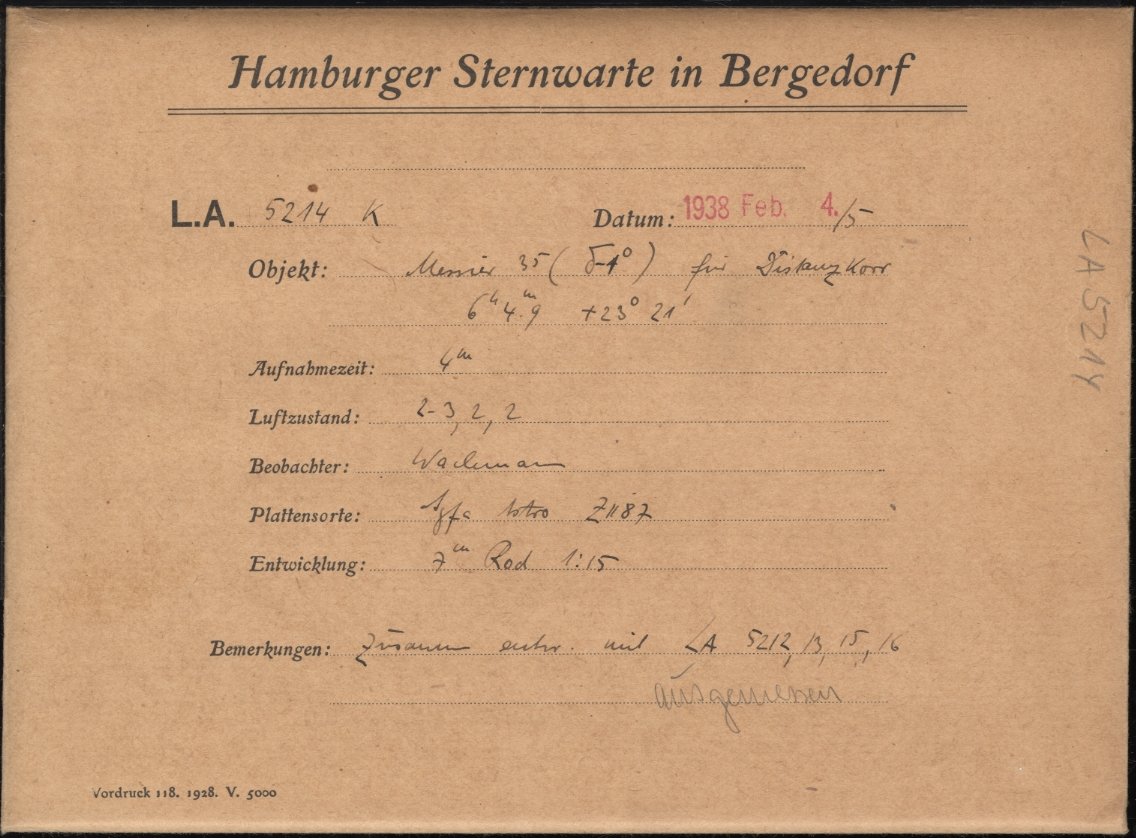 Hamburger Sternwarte in Bergedorf
L.A. 5214 K Datum: 1938 Feb. 4./5
Objekt: Messier 35 (δ-1°) für Distanzkorr
6ʰ 4ᵐ.9 +23° 21'
Aufnahmezeit: 4ᵐ
Luftzustand: 2-3, 2, 2
Beobachter: Wachmann
Plattensorte: Agfa Astro Z1187
Entwicklung: 7ᵐ Rod 1:15
Bemerkungen: Zusammen entw. mit LA 5212, 13, 15, 16
ausgemessen
Vordruck 118. 1928. V. 5000
LA 5214